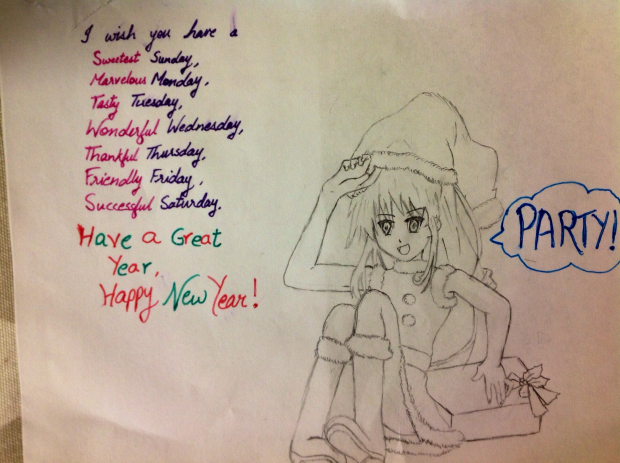 I wish you have a
Sweetest Sunday,
Marvelous Monday,
Tasty Tuesday,
Wonderful Wednesday,
Thankful Thursday,
Friendly Friday,
Successful Saturday.
Have a Great
Year,
Happy New Year!
PARTY!